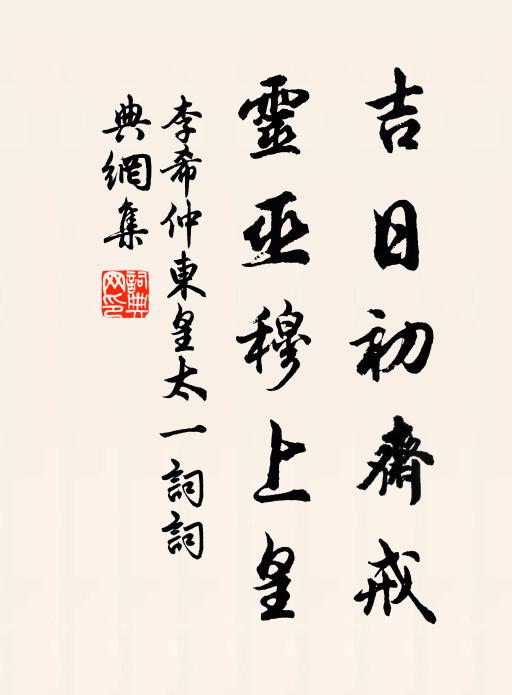 吉日初齋戒
靈巫穆上皇
李希仲東皇太一詞詞
典網集
詞典
网印